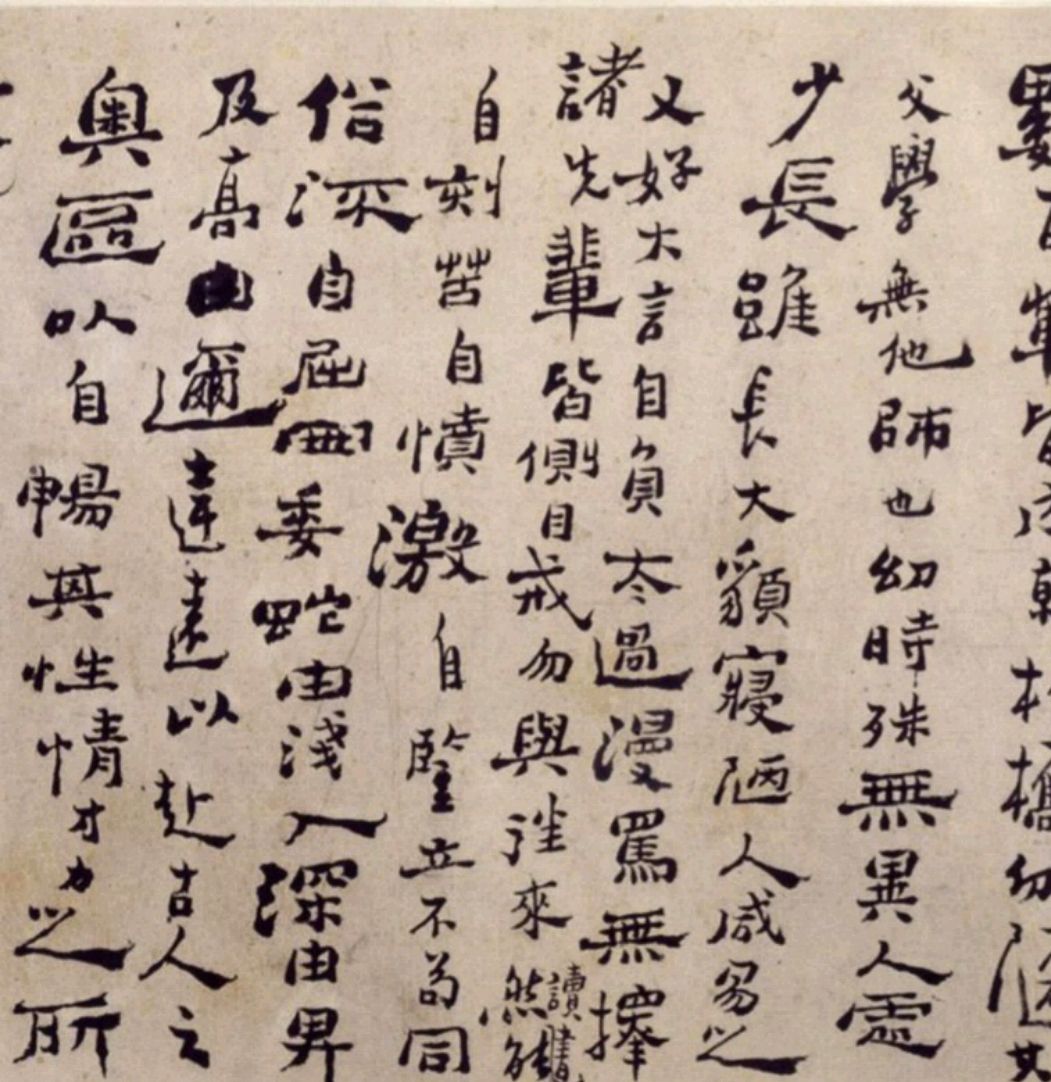 橋幼隨其
父學無他師也幼時殊無異人處
少長雖長大貌寢陋人咸易之
又好大言自負太過漫罵無擇
諸先輩皆側目戒勿與往來然讀書能
自刻苦自憤激自豎立不苟同
俗深自屈曲委蛇由淺入深由卑
及高由邇達遠以赴古人之
奧區以自暢其性情才力之所